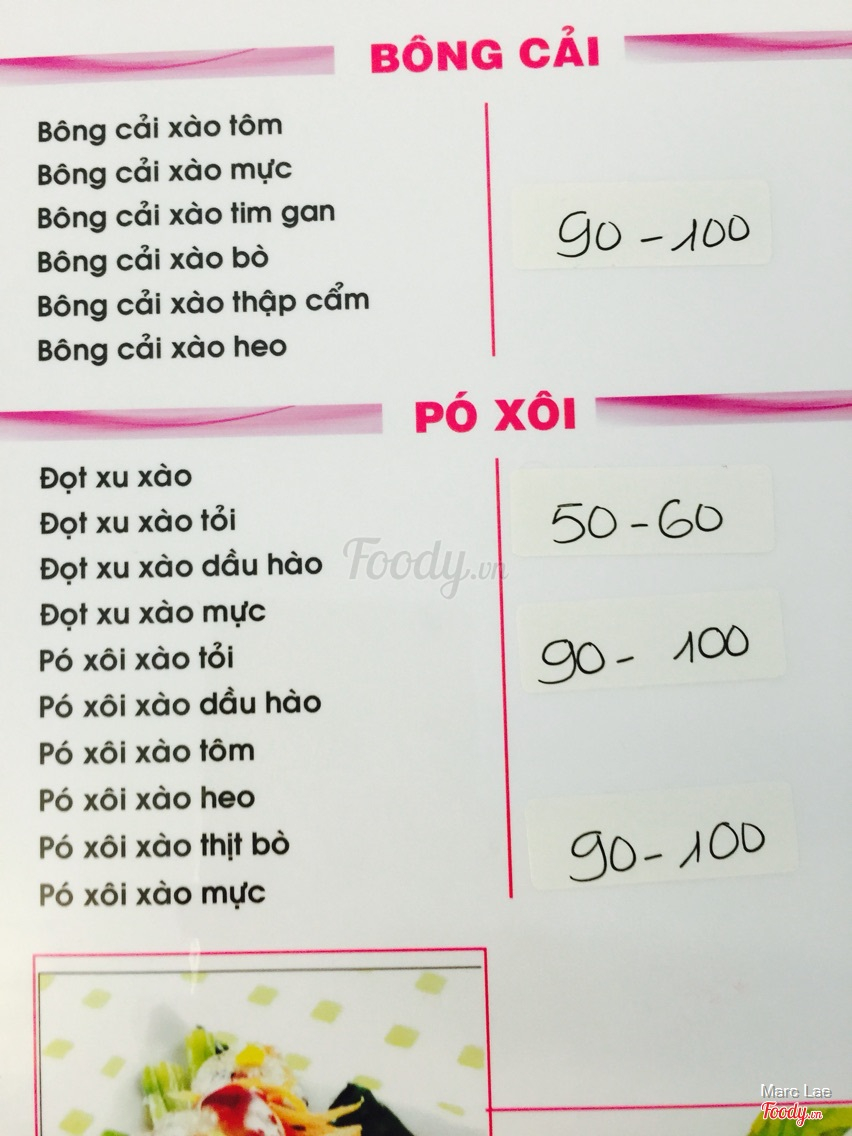 BÔNG CẢI
Bông cải xào tôm
Bông cải xào mực
Bông cải xào tim gan
Bông cải xào bò
Bông cải xào thập cẩm
Bông cải xào heo
90 - 100
PÓ XÔI
Đọt xu xào
Đọt xu xào tỏi
Đọt xu xào dầu hào
Đọt xu xào mực
Pó xôi xào tỏi
Pó xôi xào dầu hào
Pó xôi xào tôm
Pó xôi xào heo
Pó xôi xào thịt bò
Pó xôi xào mực
50 - 60
90 - 100
90 - 100
Foody.vn
Marc Lae
Foody.vn